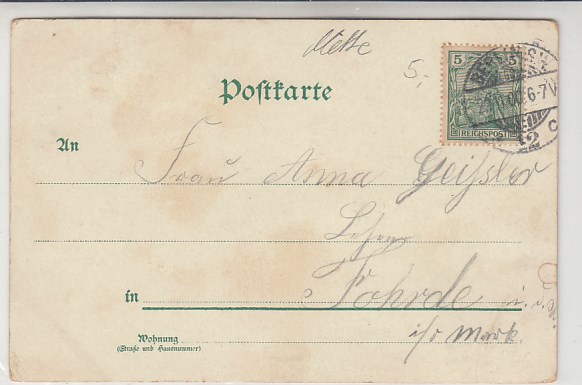 Mette
5.-
Postkarte
5 5
REICHSPOST
6-7V
12 c
An
Frau Anna Geißler
in
Föhrde
Wohnung
(Straße und Hausnummer)
i/o Mark.